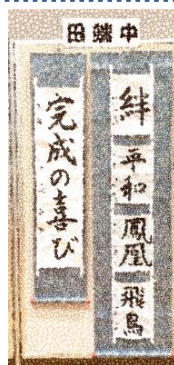 田端中
絆
平和
鳳凰
飛鳥
完成の喜び